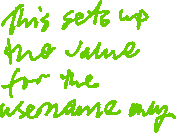 This sets up
the value
for the
username my